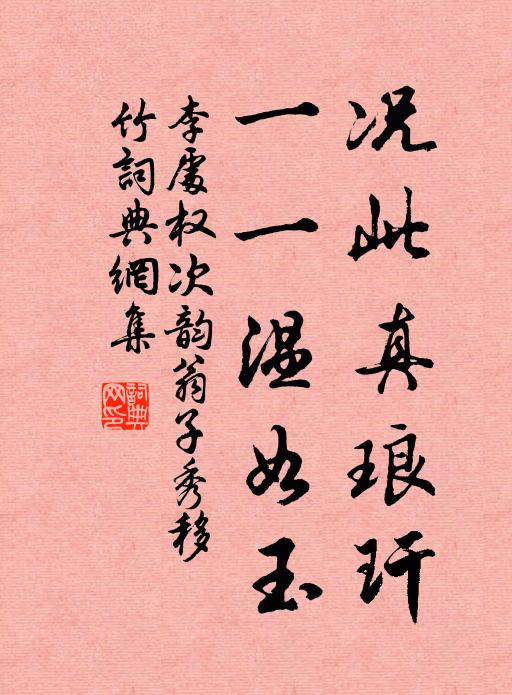 况此真琅玕
一一温如玉
李處权次韵翁子秀移
竹詞典網集
詞典
网印